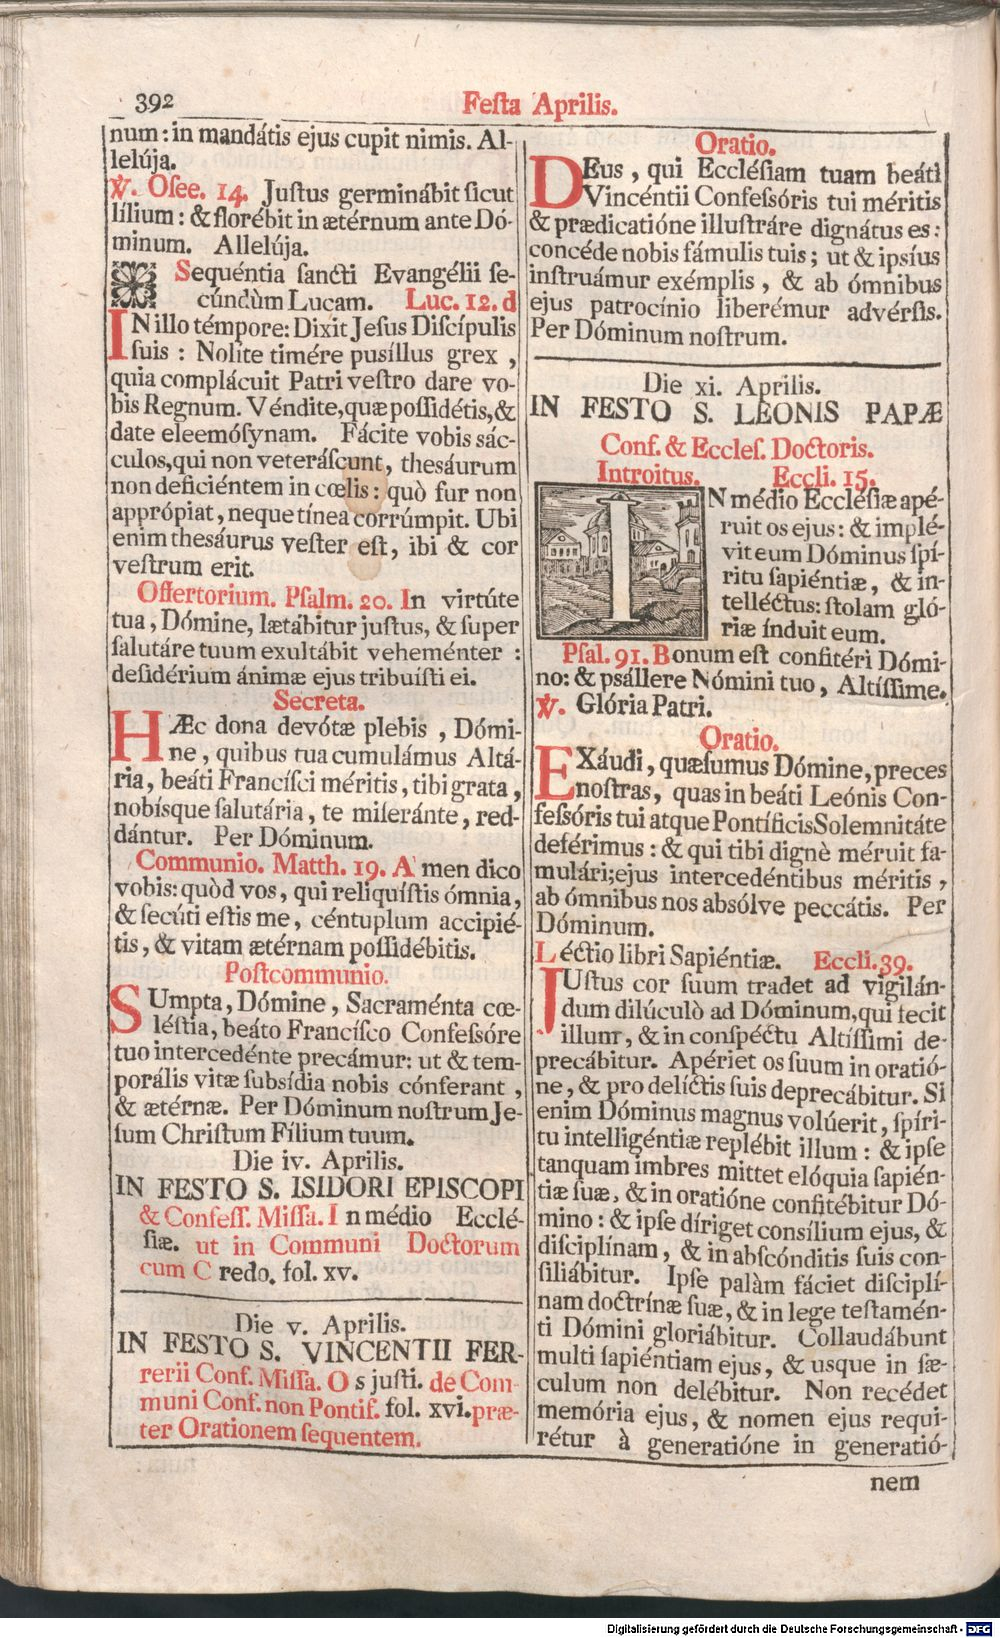 392
Festa Aprilis.
num: in mandátis ejus cupit nimis. Al-
lelúja.
℣. Osee. 14. Justus germinábit sicut
lílium: & florébit in ætérnum ante Dó-
minum. Allelúja.
Sequéntia sancti Evangélii se-
cúndùm Lucam. Luc. 12. d
IN illo témpore: Dixit Jesus Discípulis
suis: Nolíte timére pusíllus grex,
quia complácuit Patri vestro dare vo-
bis Regnum. Véndite, quæ possidétis, &
date eleemósynam. Fácite vobis sác-
culos, qui non veteráscunt, thesáurum
non deficiéntem in cœlis: quò fur non
apprópiat, neque tínea corrúmpit. Ubi
enim thesáurus vester est, ibi & cor
vestrum erit.
Offertorium. Psalm. 20. In virtúte
tua, Dómine, lætábitur justus, & super
salutáre tuum exultábit veheménter:
desidérium ánimæ ejus tribuísti ei.
Secreta.
HÆc dona devótæ plebis, Dómi-
ne, quibus tua cumulámus Altá-
ria, beáti Francísci méritis, tibi grata,
nobísque salutária, te miseránte, red-
dántur. Per Dóminum.
Communio. Matth. 19. A men dico
vobis: quòd vos, qui reliquístis ómnia,
& secúti estis me, céntuplum accipié-
tis, & vitam ætérnam possidébitis.
Postcommunio.
SUmpta, Dómine, Sacraménta cœ-
léstia, beáto Francísco Confessóre
tuo intercedénte precámur: ut & tem-
porális vitæ subsídia nobis cónferant,
& ætérnæ. Per Dóminum nostrum Je-
sum Christum Fílium tuum.
Die iv. Aprilis.
IN FESTO S. ISIDORI EPISCOPI
& Confess. Missa. I n médio Ecclé-
siæ. ut in Communi Doctorum
cum C redo. fol. xv.
Die v. Aprilis.
IN FESTO S. VINCENTII FER-
rerii Conf. Missa. O s justi. de Com-
muni Conf. non Pontif. fol. xvi. præ-
ter Orationem sequentem.
Oratio.
DEus, qui Ecclésiam tuam beáti
Vincéntii Confessóris tui méritis
& prædicatióne illustráre dignátus es:
concéde nobis fámulis tuis; ut & ipsíus
instruámur exémplis, & ab ómnibus
ejus patrocínio liberémur advérsis.
Per Dóminum nostrum.
Die xi. Aprilis.
IN FESTO S. LEONIS PAPÆ
Conf. & Eccles. Doctoris.
Introitus. Eccli. 15.
IN médio Ecclésiæ apé-
ruit os ejus: & implé-
vit eum Dóminus spí-
ritu sapiéntiæ, & in-
telléctus: stolam gló-
riæ índuit eum.
Psal. 91. Bonum est confitéri Dómi-
no: & psállere Nómini tuo, Altíssime.
℣. Glória Patri.
Oratio.
EXáudi, quæsumus Dómine, preces
nostras, quas in beáti Leónis Con-
fessóris tui atque Pontíficis Solemnitáte
deférimus: & qui tibi dignè méruit fa-
mulári; ejus intercedéntibus méritis,
ab ómnibus nos absólve peccátis. Per
Dóminum.
Léctio libri Sapiéntiæ. Eccli. 39.
JUstus cor suum tradet ad vigilán-
dum dilúculò ad Dóminum, qui fecit
illum, & in conspéctu Altíssimi de-
precábitur. Apériet os suum in oratió-
ne, & pro delíctis suis deprecábitur. Si
enim Dóminus magnus volúerit, spíri-
tu intelligéntiæ replébit illum: & ipse
tanquam imbres mittet elóquia sapién-
tiæ suæ, & in oratióne confitébitur Dó-
mino: & ipse díriget consílium ejus, &
disciplínam, & in abscónditis suis con-
siliábitur. Ipse palàm fáciet disciplí-
nam doctrínæ suæ, & in lege testamén-
ti Dómini gloriábitur. Collaudábunt
multi sapiéntiam ejus, & usque in sæ-
culum non delébitur. Non recédet
memória ejus, & nomen ejus requi-
rétur à generatióne in generatió-
nem
Digitalisierung gefördert durch die Deutsche Forschungsgemeinschaft - DFG